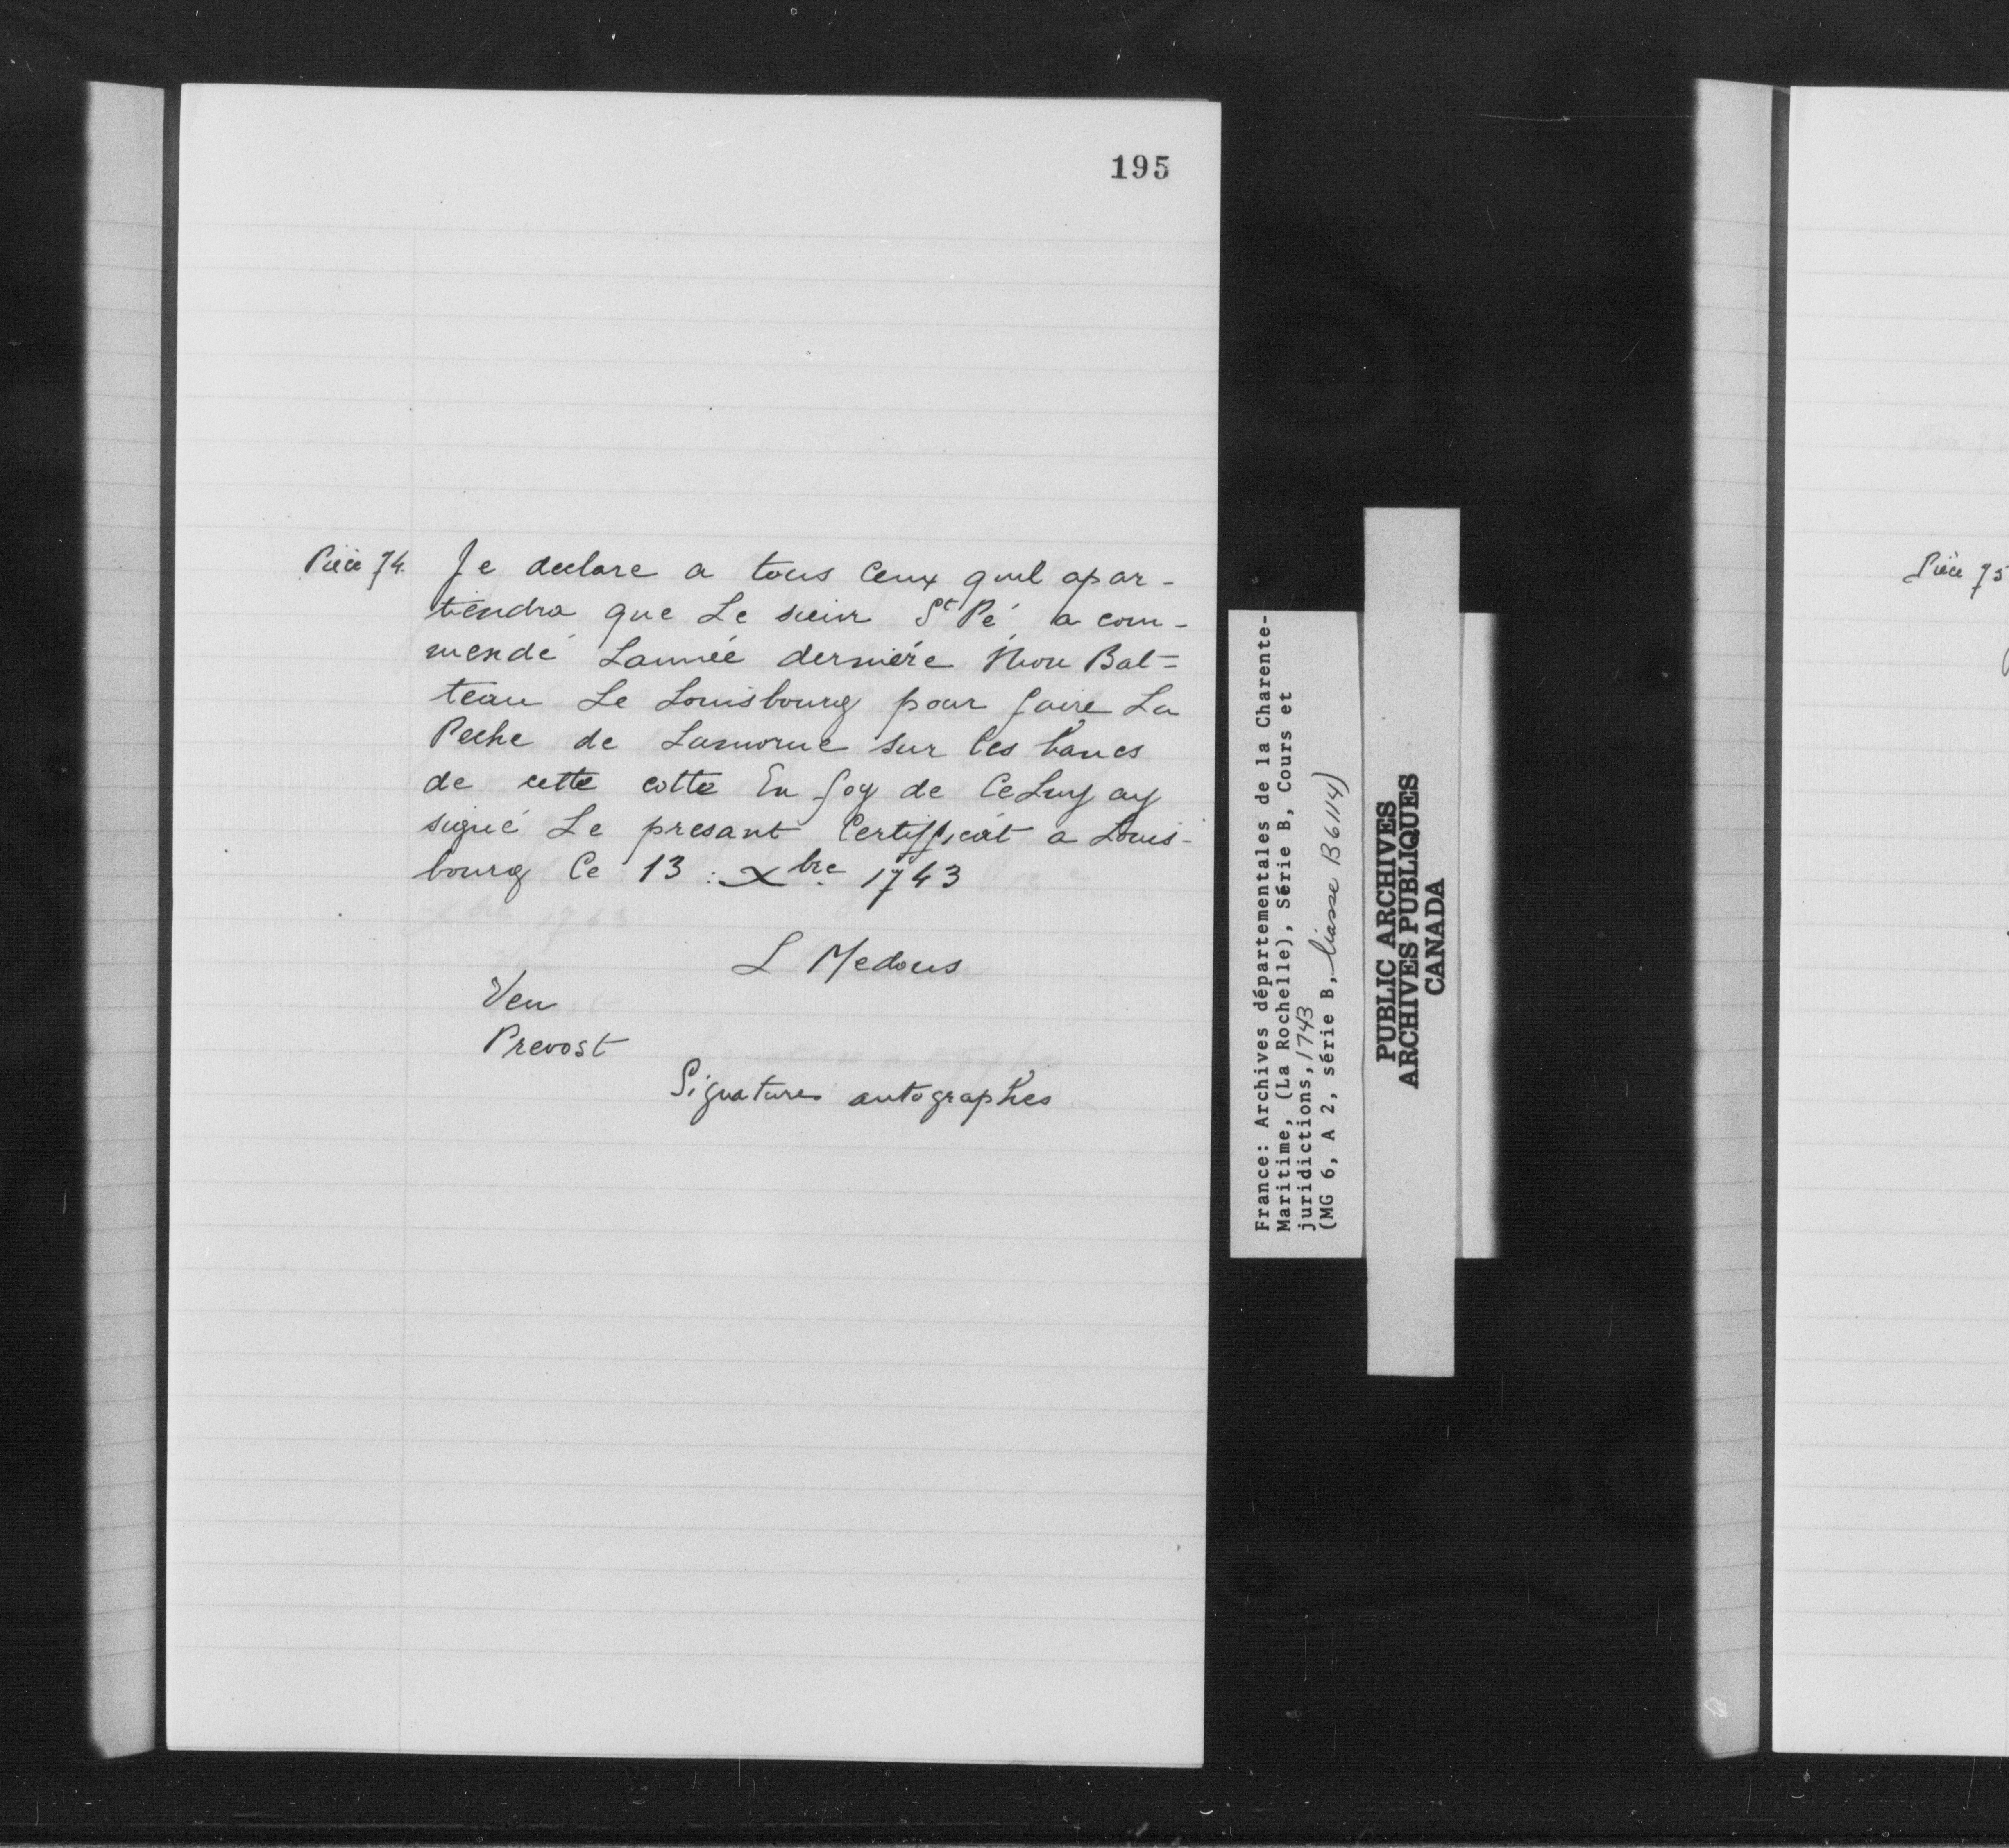 195
Pièce 74. Je declare a tous Ceux quil apar-
tiendra que Le sieur St Pé a com-
mendé Lannée derniére Mon Bat=
teau Le Louisbourg pour faire La
Peche de Lamorue sur les bancs
de cette cotte En foy de CeLuy ay
signé Le presant Certifficat a Louis-
bourg Ce 13 : Xbre 1743
L Medous
Veu
Prevost
Signatures autographes
France: Archives départementales de la Charente-
Maritime, (La Rochelle), Série B, Cours et
juridictions, 1743
(MG 6, A 2, série B, liasse B6114)
PUBLIC ARCHIVES
ARCHIVES PUBLIQUES
CANADA
Pièce 75